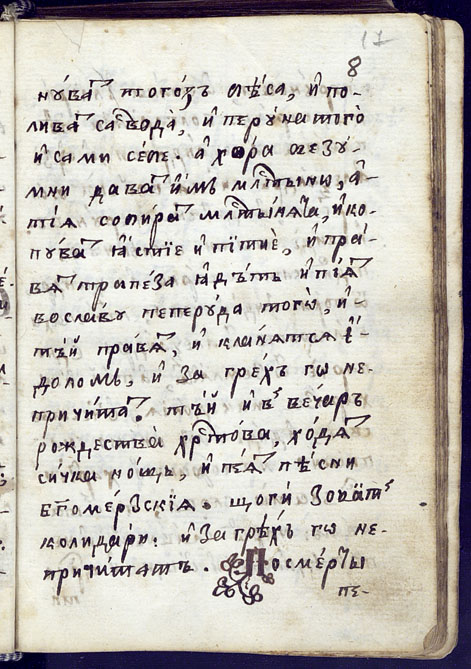 17
8
нꙋ́ваⷮ тогозъ бѣ́са, и҆ по-
лива̀ⷮ саⷭ҇ вода̀, и҆ перꙋ́на того̀
и҆ сами се́бе. а҆ хо́ра безꙋ́-
мни даваⷮ и҆́мь млⷭ҇тыню, а҆-
тїѧ собираⷮ млⷭ҇ты́нѧта, и҆ кꙋ-
пꙋ́ваⷮ ꙗ҆́стїе и҆ пїтїе, и҆ пра́-
вѧⷮ трапе́за ꙗ҆дъ́тъ и҆ пїѧ́ⷮ
во славꙋ пеперꙋда того̀, и҆-
тъй правѧⷮ, и҆ кланѧтсѧ і҆́-
доломь, и҆ за грѣхъ го не-
причи́таⷮ. тъй и҆ въ вечарь
рождества̀ хрⷭ҇това, хо́дѧⷮ
си́чка нощь, и҆ пѣ́ѧⷮ пѣ́сни
бг҃омерзскїѧ. щоги зова́тъ
колидари. и҆ за грѣ́хъ го не-
причитатъ. По сме́рты
пе-